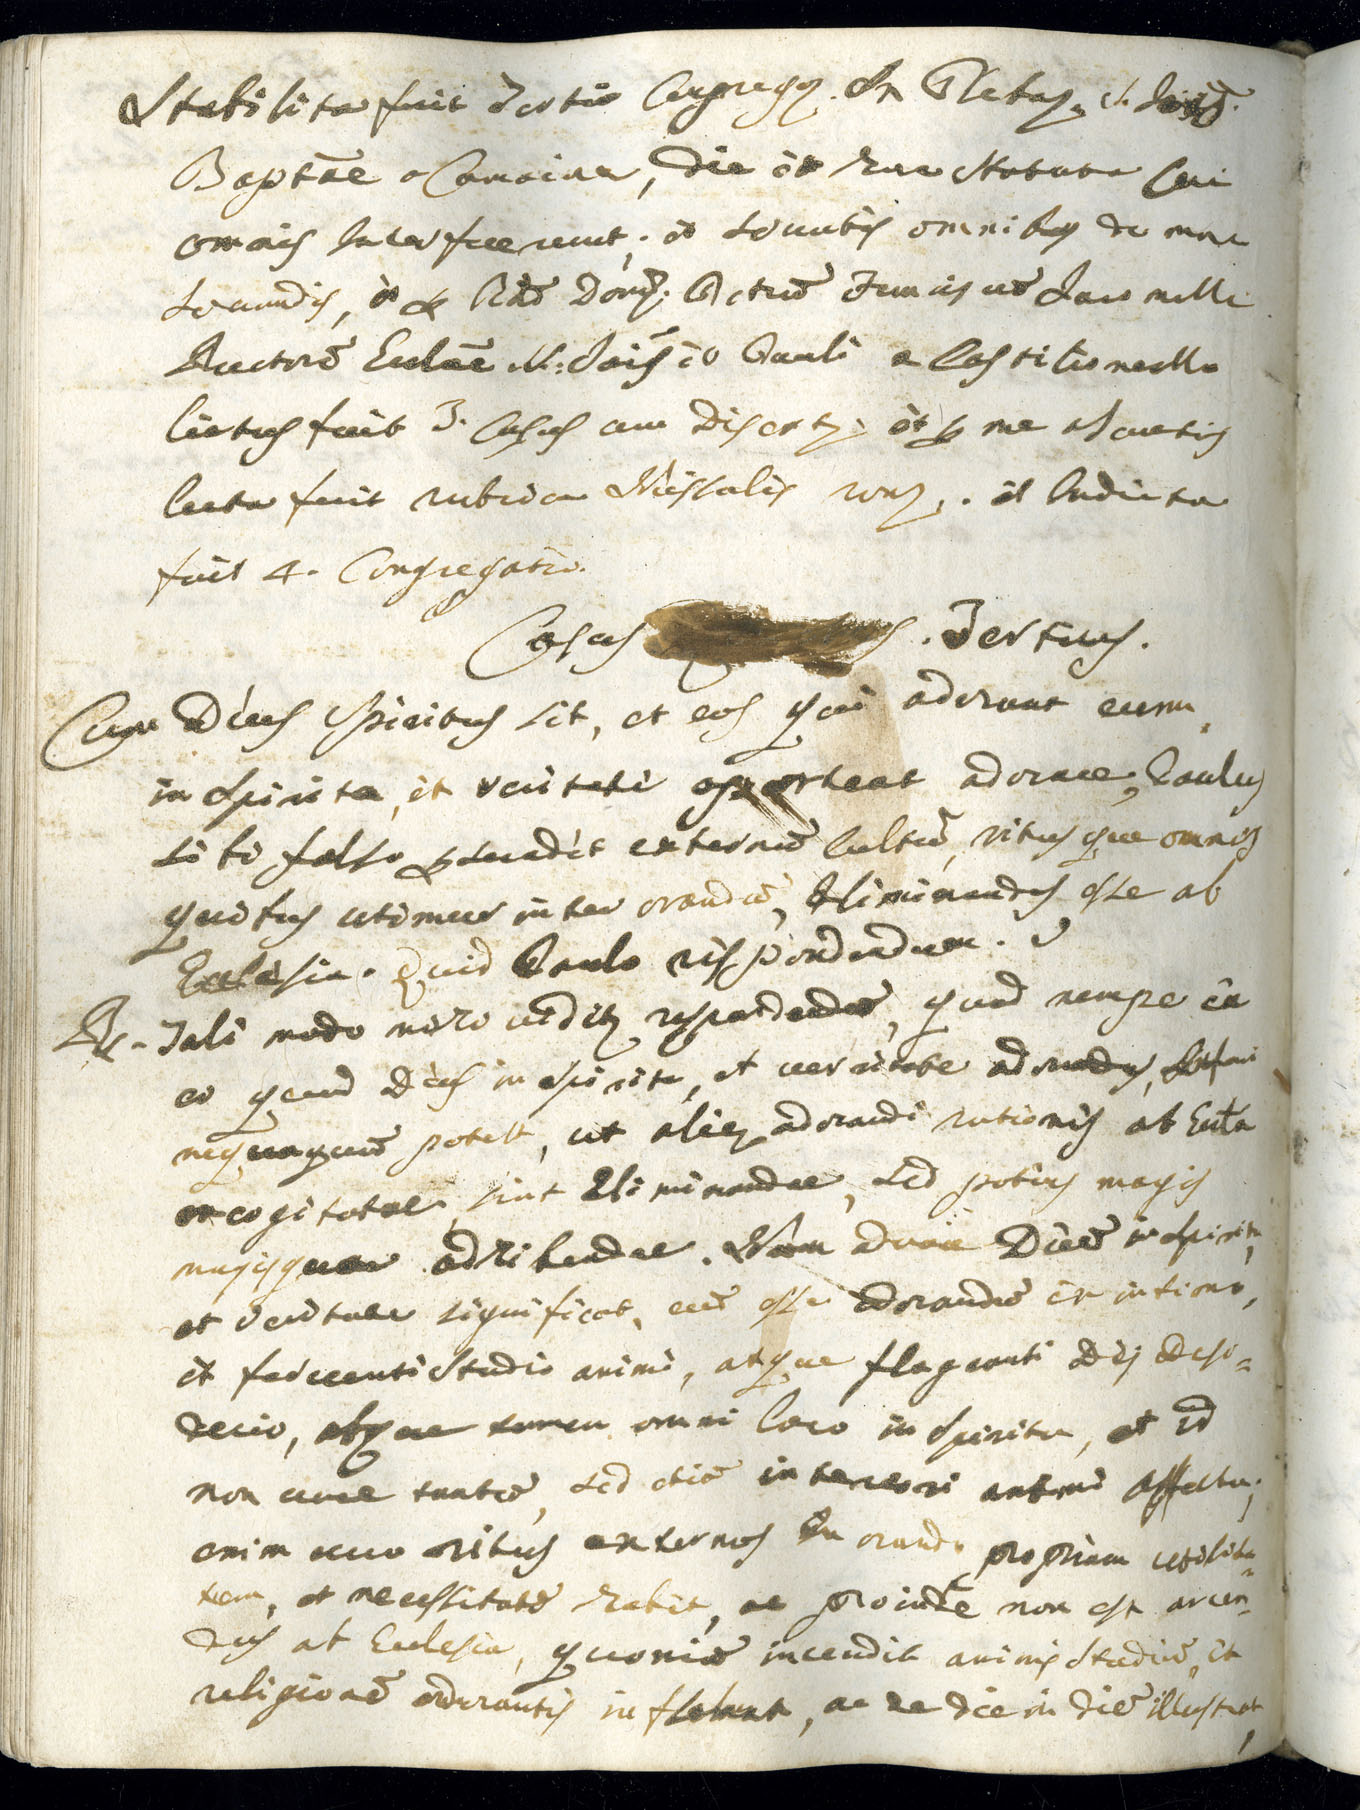 Stabilita fuit tertia Congreg. In Plebe S. Jōis
Baptāe a Camaira, die et hora statuta cui
omnes interfuerunt; et servatis omnibus de more
servandis, et per Rdū Dom: Petrū Franciscū
Rectorē Eccłae S: Jōis et Pauli a Castilionello
lectus fuit 3. Casus cum disert. et per me
lecta fuit rubrica Missalis rom. et Indicta
fuit 4. Congregatio.
Casus . Tertius.
Cum Deus Spiritus sit, et eos qui adorant eum,
in Spiritu, et veritate oporteat adorare; Paulus
sibi falso psuadet externū Cultū, ritusque omnes
quibus utimur inter orandū, Eliminandos esse ab
Ecclesia. Quid Paulo respondendum. ?
R. Tali modo respondendū, quod nempe ex
eo quod Deus in Spiritu, et veritate adorandus,
nequaquā potest, ut aliq adorandi rationes ab Eccła
excogitatae, sint Eliminandae, sed potius magis
magisque adhibendae. Nam adorare Deū in Spiritu,
et veritate significat, eū esse adorandū ex intimo,
et ferventi studio animi, atque flagranti Dei desi=
derio, absque tamen omni loco in Spiritu, et id
non ore tantū, sed etiā interiori animi affectu;
enim vero ritus externos in orando propriam utilita=
tem, et necessitatē habet, ac proinde non est arcen=
dus ab Ecclesia, quoniā incendit animis studiū, et
religionē adorantis inflamat, ac de die in diē illustrat,